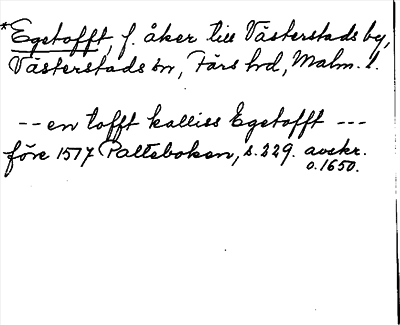 *Egstofft, f. åker till Västerstads by,
Västerstads sn, Färs hd, Malm. l.
-- en tofft kalliss Egstofft ---
före 1517 Palteboken, s. 229. avskr.
o. 1650.